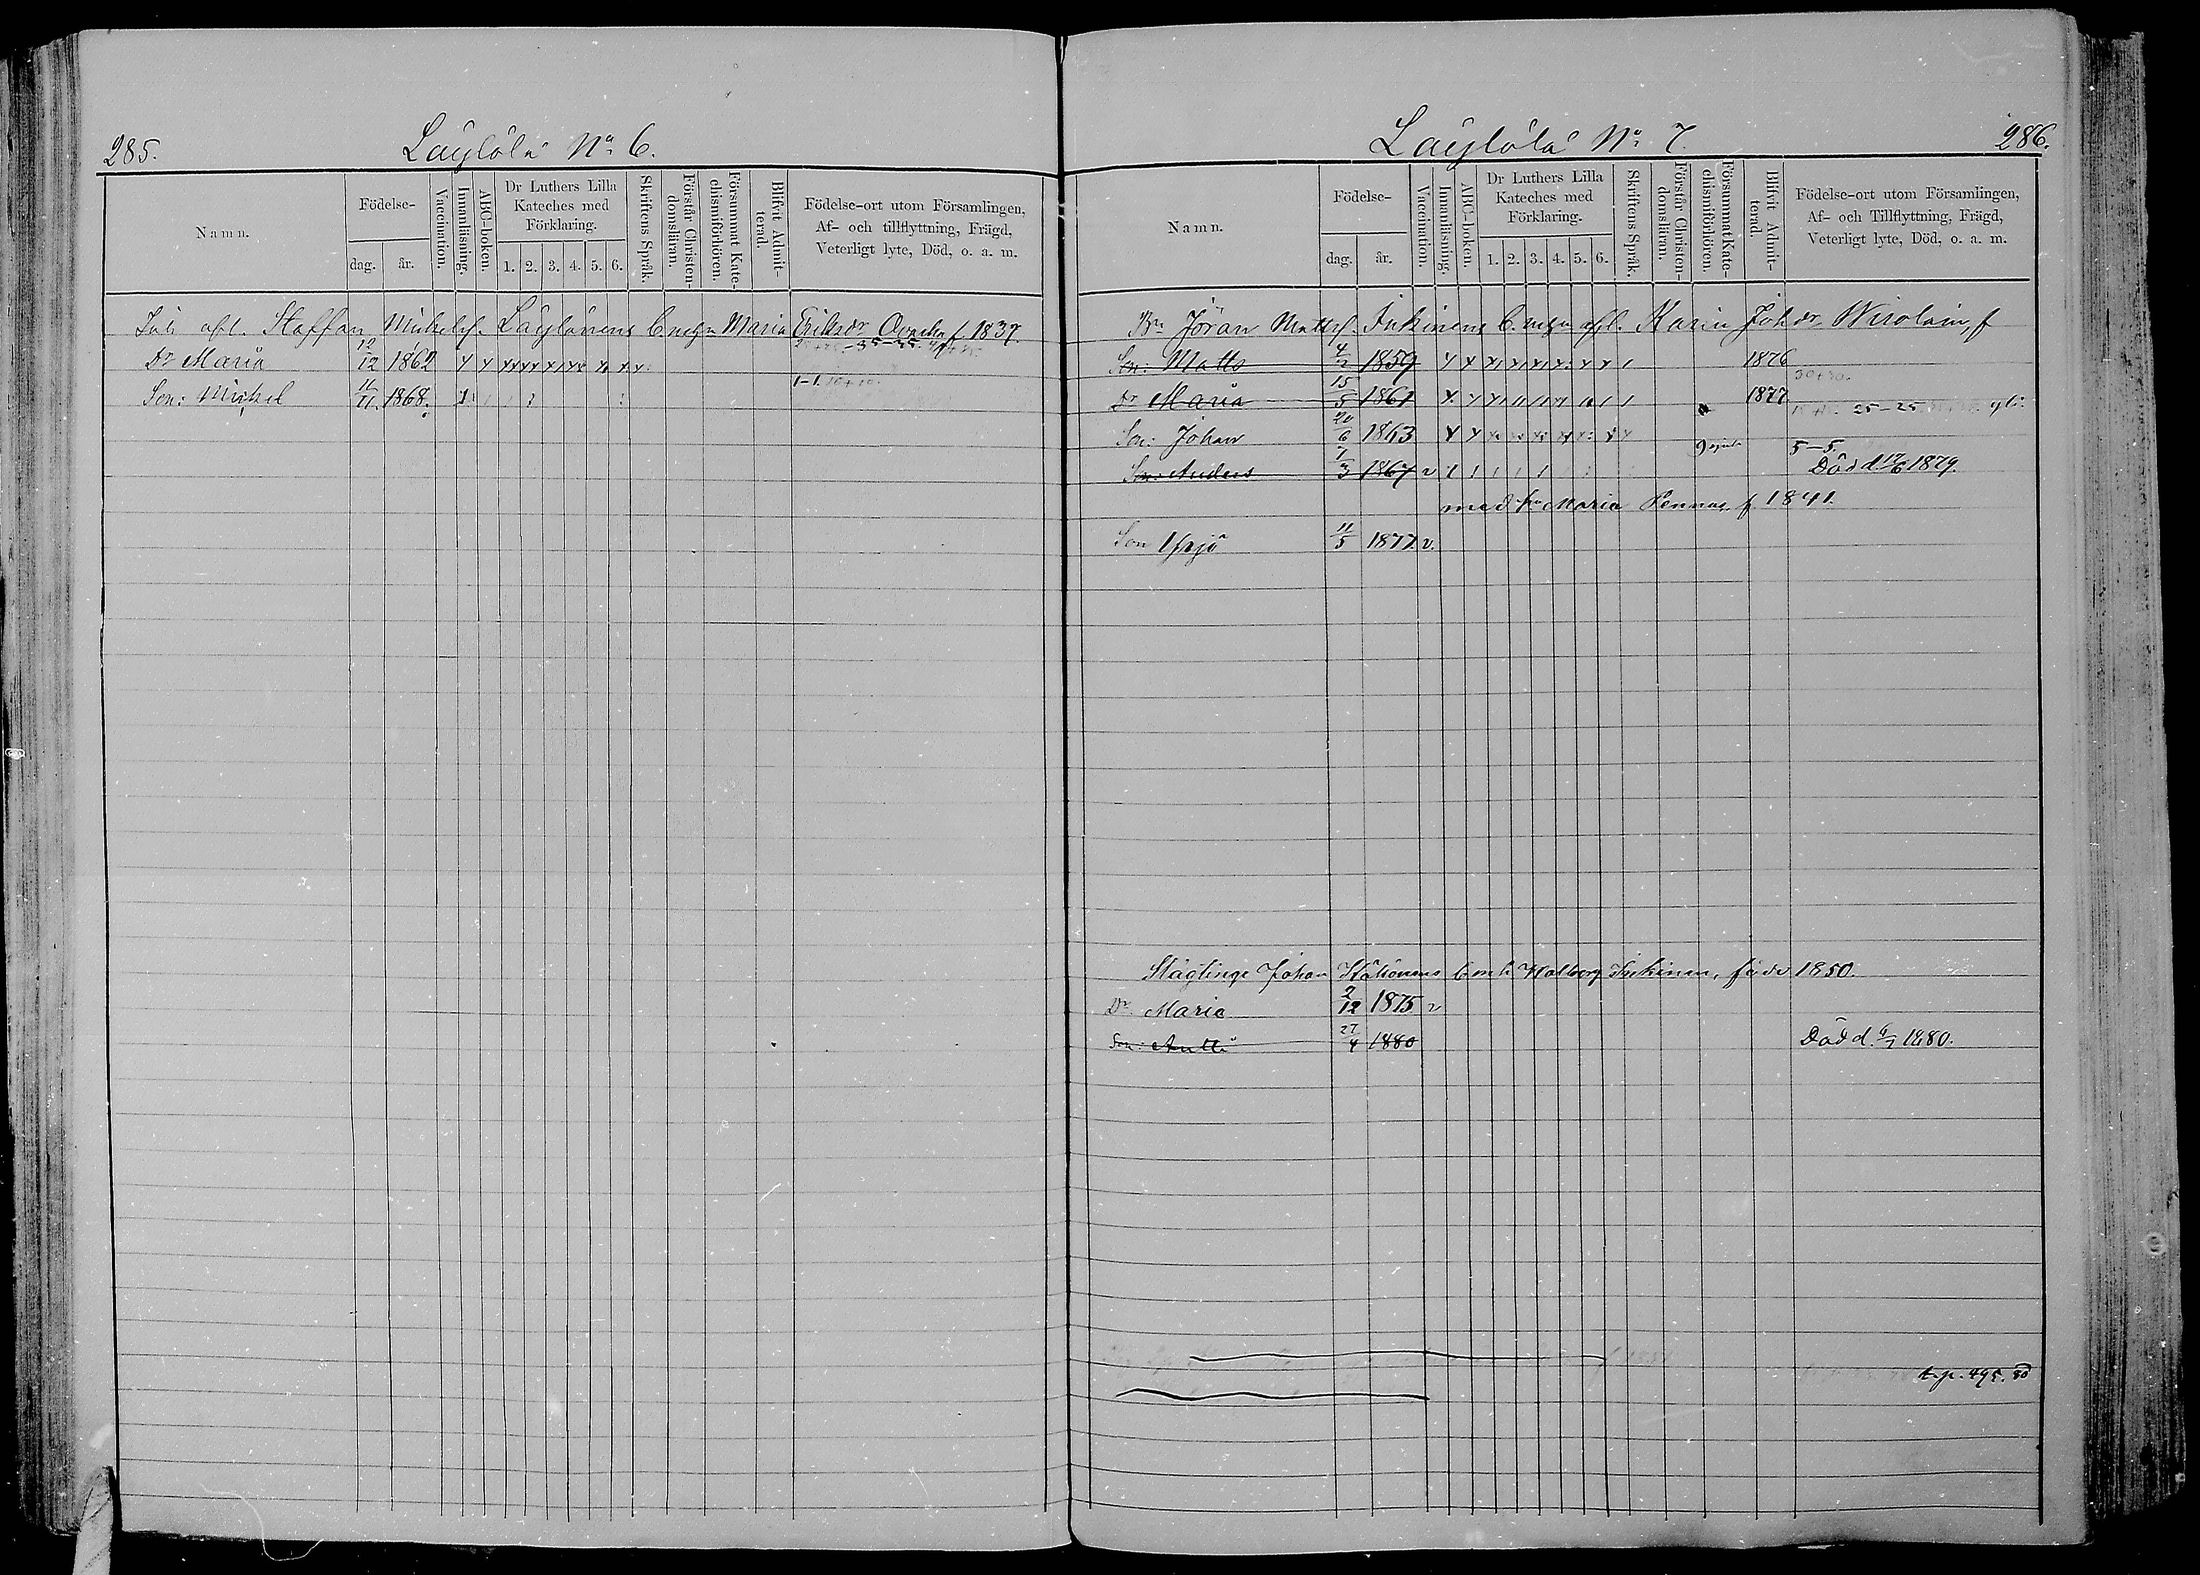 285.
Läylölä No 6.
Namn.
Födelse-
dag.
år.
Vaccination.
Innanläsning.
ABC-boken.
Dr Luthers Lilla
Kateches med
Förklaring.
1. 2. 3. 4. 5. 6.
Skriftens Språk.
Förstår Christen-
domsläran.
Försummat Kate-
chismiförhören.
Blifvit Admit-
terad.
Födelse-ort utom Församlingen,
Af- och tillflyttning, Frägd,
Veterligt lyte, Död, o. a. m.
afl. Staffan Mickelsf. Läylöinens Maria Eriksdr f. 1837.
Dr Maria 12/12 1862
35-35.
Son: Mickel 11/11. 1868.
1-1.
Läylölä No 7.
286.
Namn.
Födelse-
dag.
år.
Vaccination.
Innanläsning.
ABC-boken.
Dr Luthers Lilla
Kateches med
Förklaring.
1. 2. 3. 4. 5. 6.
Skriftens Språk.
Förstår Christen-
domsläran.
Försummat Kate-
chismiförhören
Blifvit Admit-
terad.
Födelse-ort utom Församlingen,
Af- och Tillflyttning, Frägd,
Veterligt lyte, Död, o. a. m.
Bn Jöran Mattsf. Inkinens afl. Karin Joh dr Wirolain, f
Son: Matts 4/2 1859 1876
Dr Maria 15/5 1861 1877
25-25
Son: Johan 20/6 1863
5-5.
Son: Anders 7/3 1867 v Död d. 17/6 1879.
med Maria Pennan f 1841.
Son Yrjö 11/5 1877 v.
Johan Walborg Inkinen, född 1850.
Dr. Maria 2/12 1875 v
Son: Antti 27/4 1880 Död d. 6/7 1880.